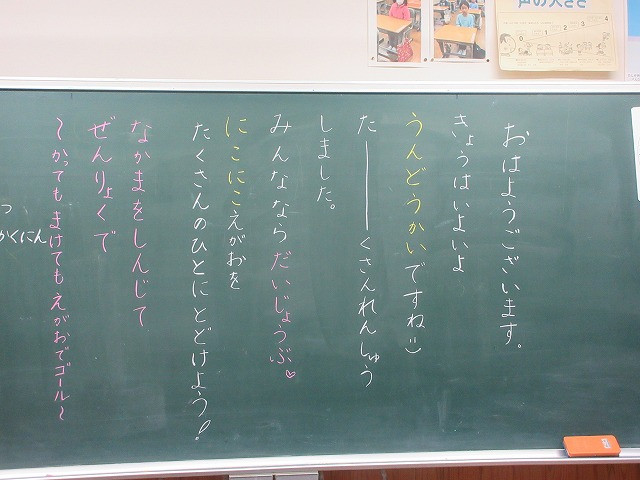 おはようございます。
きょうはいよいよ
うんどうかいですね
た――くさんれんしゅう
しました。
みんなならだいじょうぶ♡
にこにこえがおを
たくさんのひとにとどけよう!
なかまをしんじて
ぜんりょくで
〜かってもまけてもえがおでゴール〜
っ
かくにん
声の大きさ
0 1 2 3 4